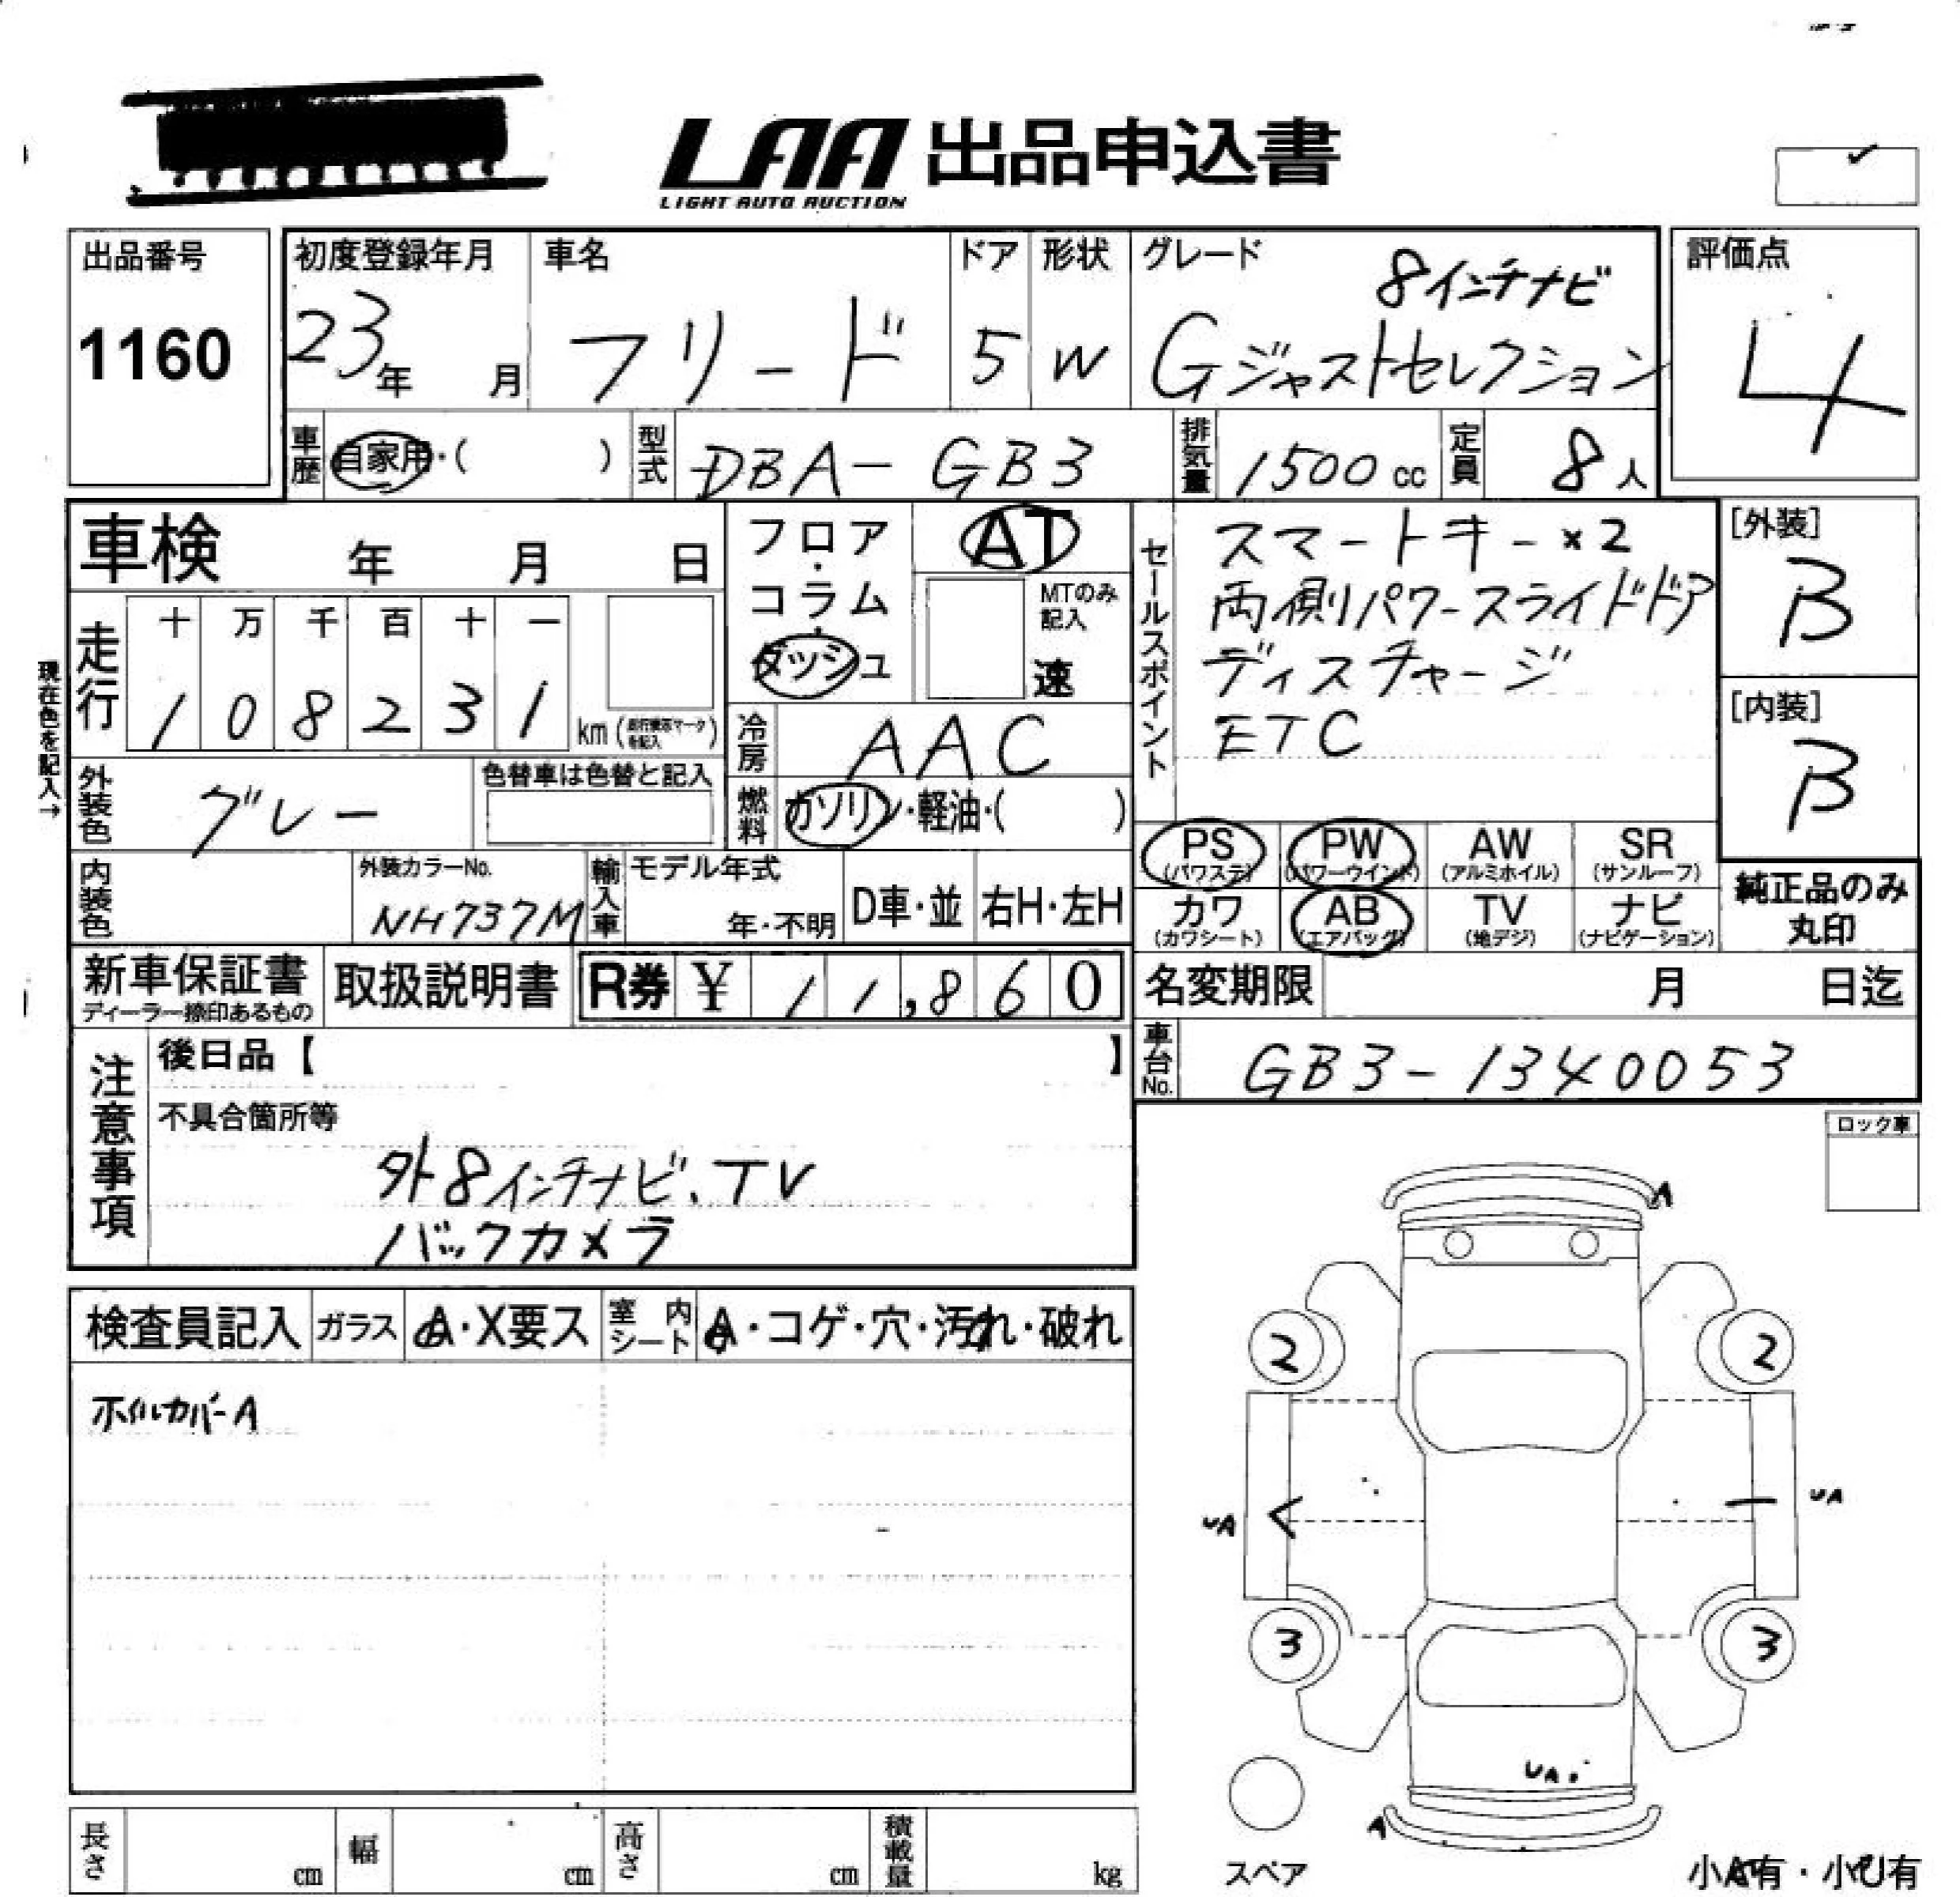 LAA 出品申込書
LIGHT AUTO AUCTION
出品番号
1160
初度登録年月
23年 月
車名
フリード
ドア
5
形状
W
グレード
8インチナビ
Gジャストセレクション
評価点
4
車歴 自家用・( )
型式 DBA-GB3
排気量 1500cc
定員 8人
車検 年 月 日
フロア・コラム・ダッシュ
AT
MTのみ記入
速
セールスポイント
スマートキー×2
両側パワースライドドア
ディスチャージ
ETC
[外装]
B
[内装]
B
現在色を記入→
走行
十 万 千 百 十 一
1 0 8 2 3 1 km
冷房 AAC
燃料 ガソリン・軽油・( )
外装色 グレー
色替車は色替と記入
内装色
外装カラーNo.
NH737M
輸入車
モデル年式
年・不明
D車・並
右H・左H
PS (パワステ)
PW (パワーウインド)
AW (アルミホイル)
SR (サンルーフ)
カワ (カワシート)
AB (エアバッグ)
TV (地デジ)
ナビ (ナビゲーション)
純正品のみ
丸印
新車保証書
ディーラー捺印あるもの
取扱説明書
R券 ¥ 11,860
名変期限 月 日迄
車台No. GB3-1340053
注意事項
後日品【 】
不具合箇所等
外8インチナビ、TV
バックカメラ
ロック車
検査員記入
ガラス A・X要ス
室内シート A・コゲ・穴・汚れ・破れ
ホイルカバーA
A
2 2
UA UA
3 3
UA
A
スペア
小A有・小U有
長さ cm
幅 cm
高さ cm
積載量 kg